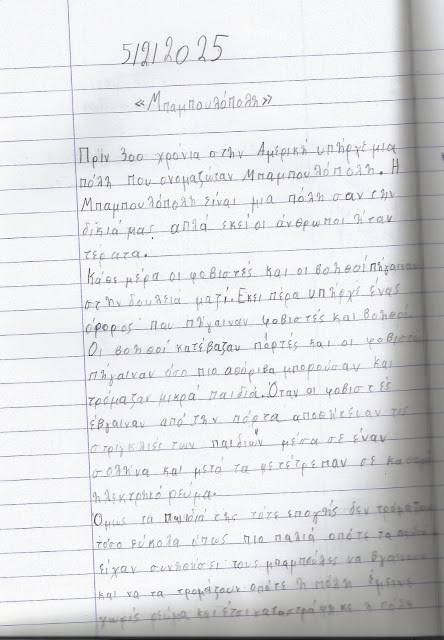 5/2/2025
«Μπαμπουλόπολη»
Πρίν 300 χρόνια στην Αμερική υπήρχε μια
πόλη που ονομαζόταν Μπαμπουλόπολη. Η
Μπαμπουλόπολη είναι μια πόλη σαν την
δικιά μας απλά εκεί οι άνθρωποι ήταν
τέρατα.
Κάθε μέρα οι φοβιστές και οι βοηθοί πήγαιναν
στην δουλειά μαζί. Εκεί πέρα υπήρχε ένας
όροφος που πήγαιναν φοβιστές και βοηθοί.
Οι βοηθοί κατέβαζαν πόρτες και οι φοβιστές
πήγαιναν όσο πιο αθόρυβα μπορούσαν και
τρόμαζαν μικρά παιδιά. Όταν οι φοβιστές
έβγαιναν από την πόρτα αποθήκευαν τις
στριγκλιές των παιδιών μέσα σε έναν
σολήνα και μετά τα μετέτρεπαν σε
ηλεκτρικό ρεύμα.
Όμως τα παιδιά της τότε εποχής δεν τρόμαζαν
τόσο εύκολα όπως πιο παλιά οπότε τα
είχαν συνηθίσει τους μπαμπούλες να βγαίνουν
και να τα τρομάζουν οπότε η πόλη έμεινε
χωρίς ρεύμα και έτσι καταστράφηκε η πόλη